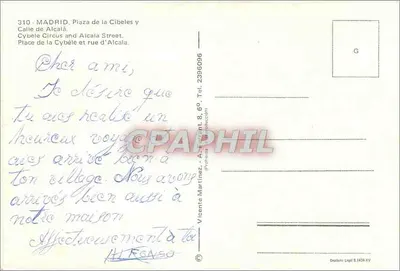 310 - MADRID. Plaza de la Cibeles y
Calle de Alcalá.
Cybele Circus and Alcala Street.
Place de la Cybèle et rue d'Alcala.
Cher ami,
Je désire que
tu aies réalié un
heureux voyage
aies arrivé bien à
ton village. Nous avons
arrivés bien aussi à
notre maison
Affectueusement à toi
ALFONSO
Vicente Martinez. - 8, 6º. Tel. 2396096
CPAPHIL